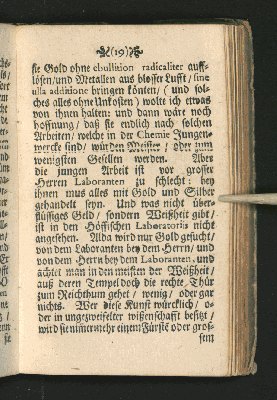 (19)
sie Gold ohne ebullition radicaliter auff-
lösen/und Metallen aus blosser Lufft/ sine
ulla additione bringen könten/ (und sol-
ches alles ohne Unkosten) wolte ich etwas
von ihnen halten: und dann wäre noch
hoffnung/ daß sie endlich nach solchen
Arbeiten/ welche in der Chemie Jungen-
wercke sind/ würden Meister/ oder zum
wenigsten Gesellen werden. Aber
die jungen Arbeit ist vor grosser
Herren Laboranten zu schlecht: bey
ihnen mus alles mit Gold und Silber
gehandelt seyn. Und was nicht über-
flüssiges Geld/ sondern Weißheit gibt/
ist in den Höffischen Laboratoriis nicht
angesehen. Alda wird nur Gold gesucht/
von dem Laboranten bey dem Herrn/ und
von dem Herrn bey dem Laboranten, und
achtet man in den meisten der Weißheit/
auß deren Tempel doch die rechte Thür
zum Reichthum gehet/ wenig/ oder gar
nichts. Wer diese Kunst würcklich/ o-
der in ungezweifelter wissenschafft besitzt/
wird sie nimermehr einem Fürstē oder gros-
sem